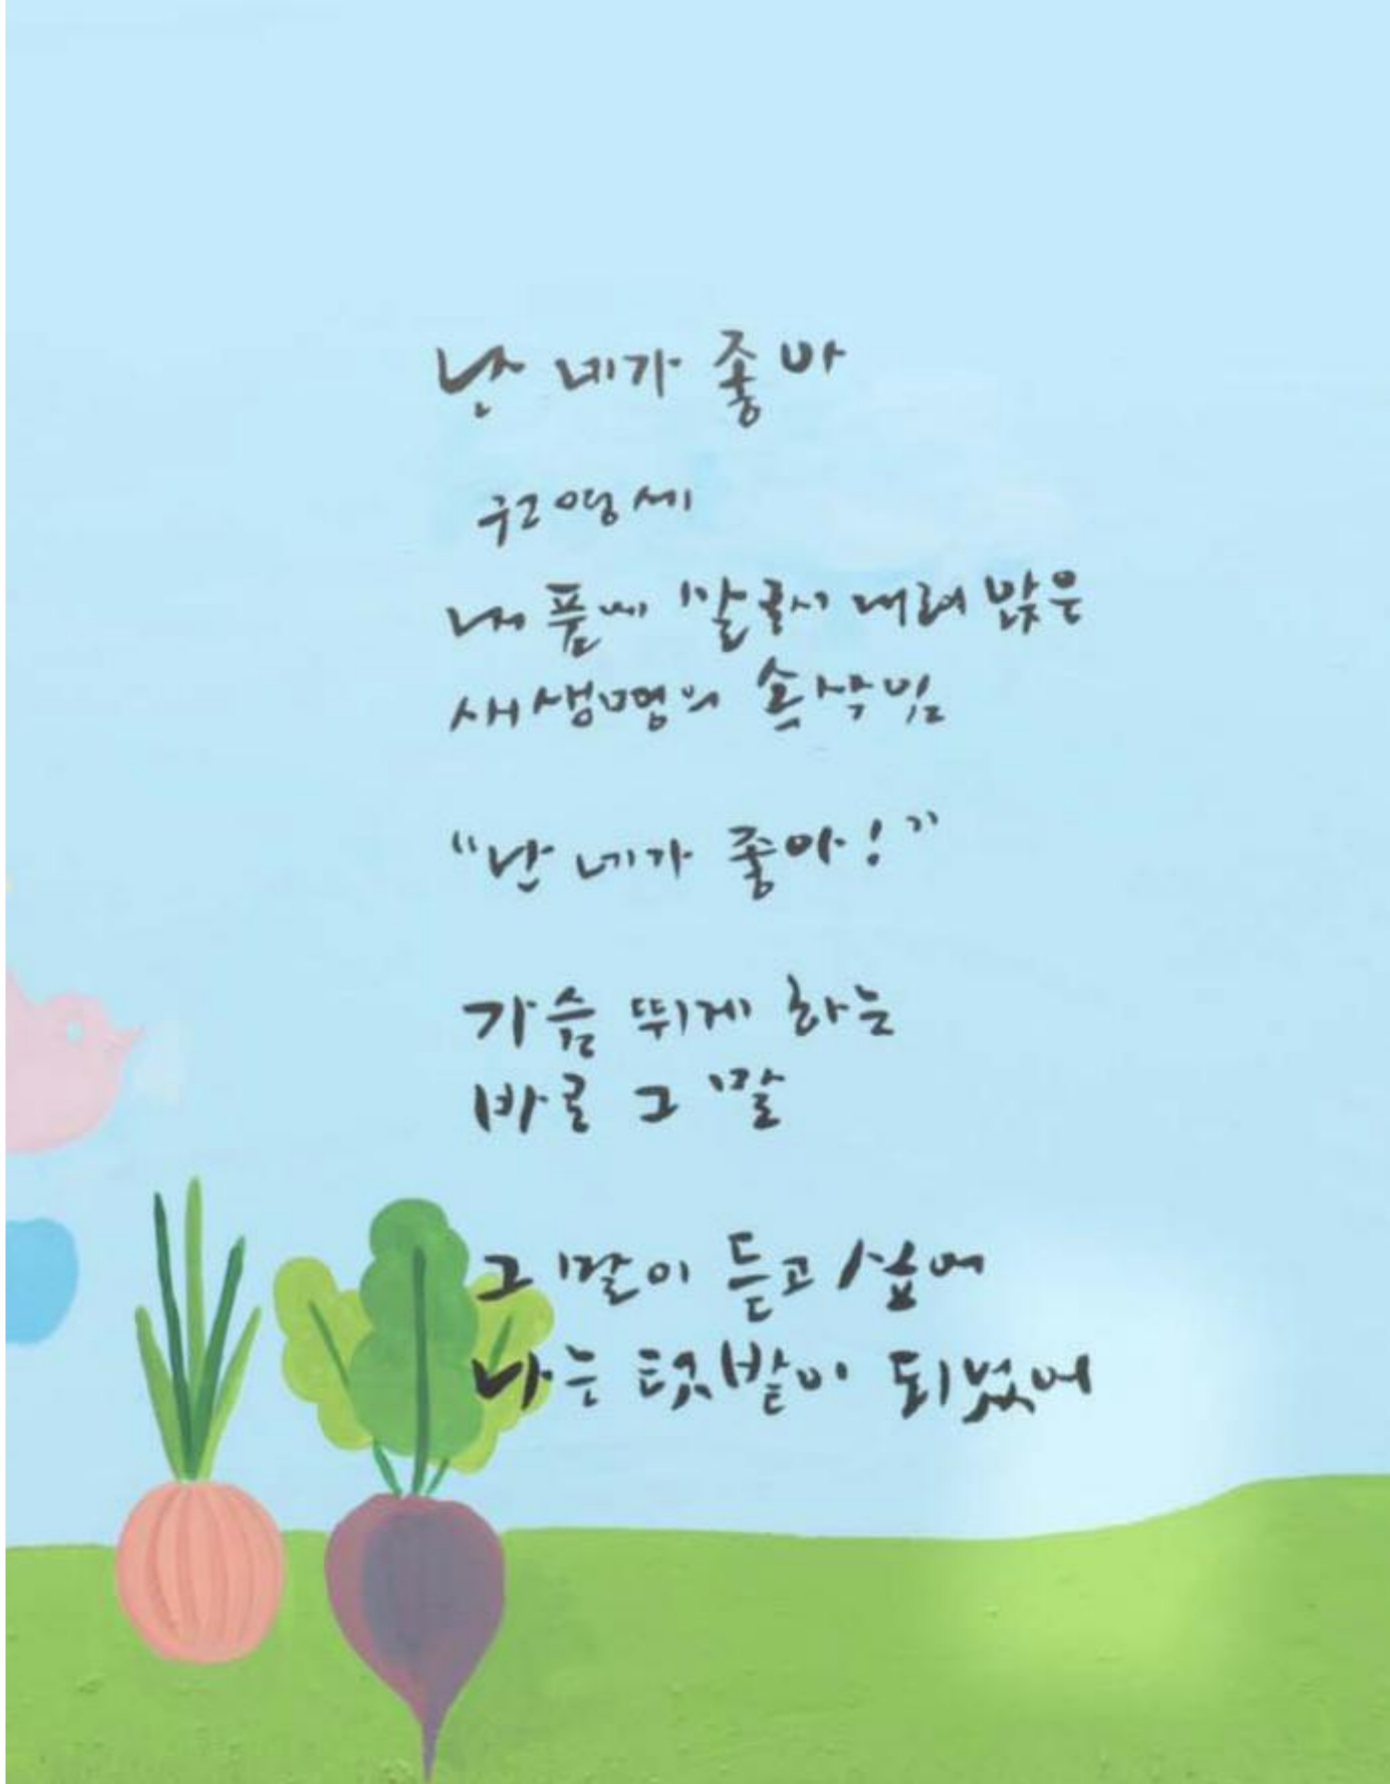 난 네가 좋아
권영세
내 품에 말꼴시 내려 앉은
새생명의 속삭임
“난 네가 좋아!”
가슴 뛰게 하는
바로 그 말
그 말이 듣고 싶어
나는 텃밭이 되었어